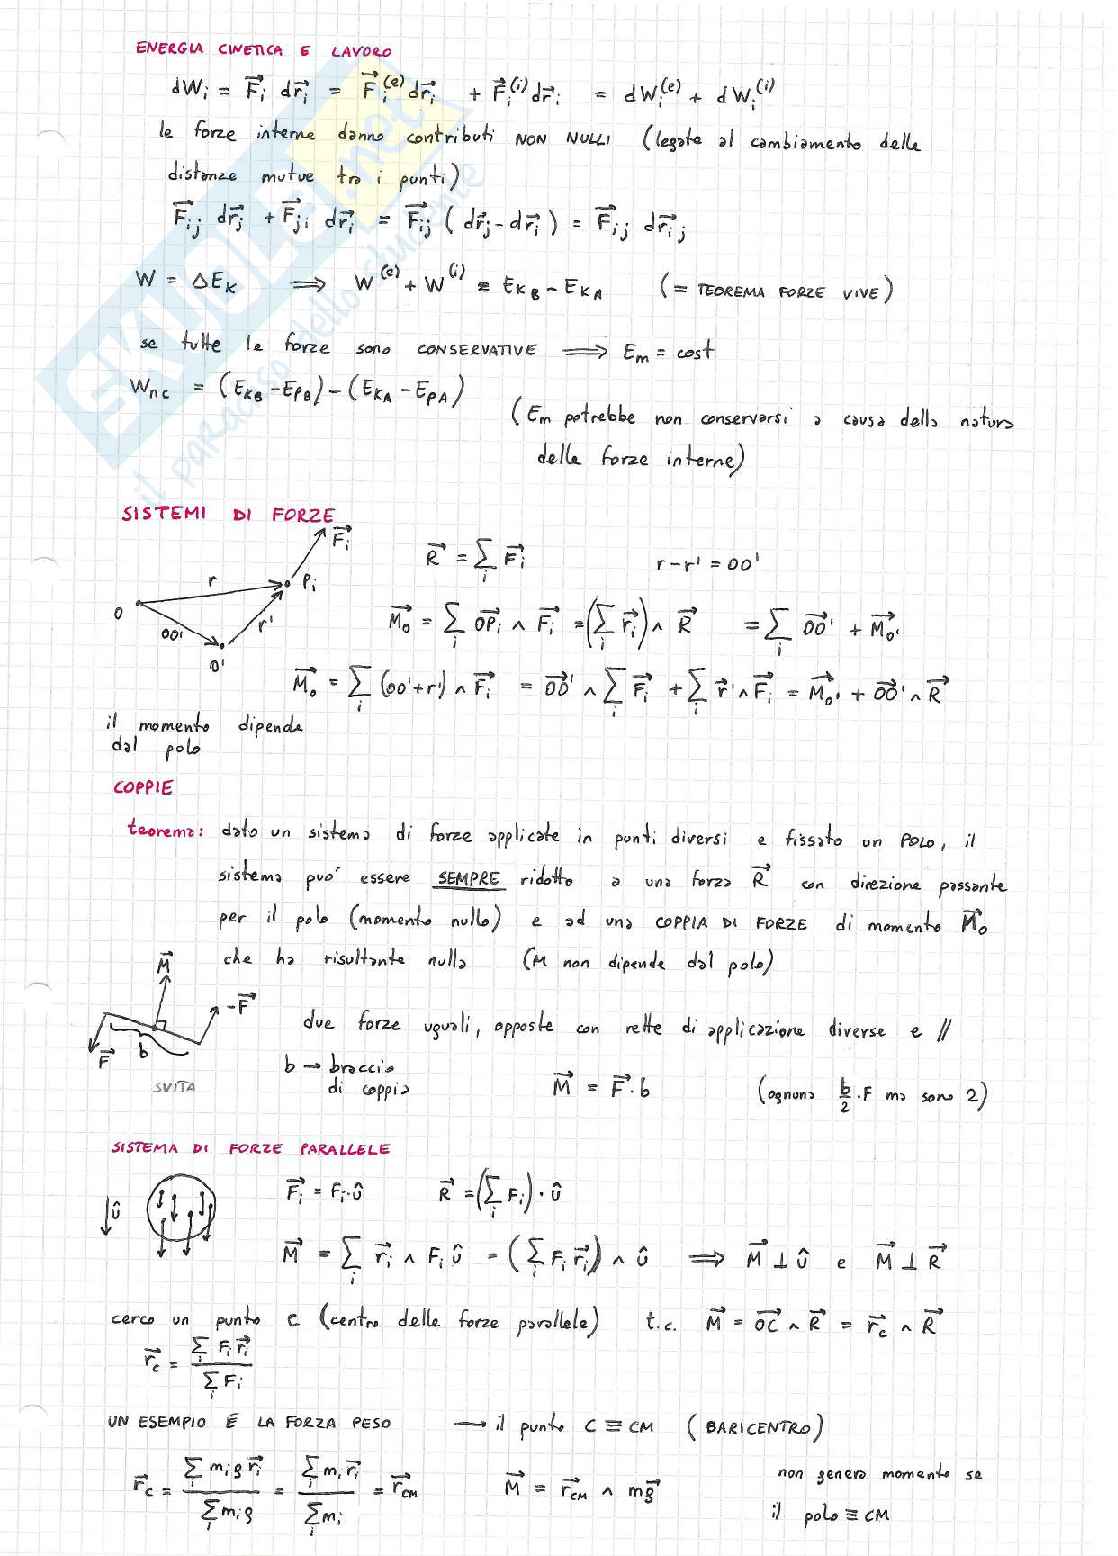 ENERGIA CINETICA E LAVORO
dWi = F⃗i dr⃗i = F⃗i(e) dr⃗i + F⃗i(i) dr⃗i = dWi(e) + dWi(i)
le forze interne danno contributi NON NULLI (legate al cambiamento delle
distanze mutue tra i punti)
F⃗ij dr⃗j + F⃗ji dr⃗i = F⃗ij (dr⃗j - dr⃗i) = F⃗ij dr⃗ij
W = ΔEK ⟹ W(e) + W(i) = EKB - EKA (= TEOREMA FORZE VIVE)
se tutte le forze sono CONSERVATIVE ⟹ Em = cost
Wnc = (EKB - EPB) - (EKA - EPA)
(Em potrebbe non conservarsi a causa della natura
delle forze interne)
SISTEMI DI FORZE
F⃗i
r
Pi
O
OO'
r'
O'
R⃗ = ∑i F⃗i r - r' = OO'
M⃗o = ∑i OP⃗i ∧ F⃗i = (∑i r⃗i) ∧ R⃗ = ∑i OO⃗' + M⃗o'
M⃗o = ∑i (OO' + r') ∧ F⃗i = OO⃗' ∧ ∑i F⃗i + ∑i r⃗' ∧ F⃗i = M⃗o' + OO⃗' ∧ R⃗
il momento dipende
dal polo
COPPIE
teorema: dato un sistema di forze applicate in punti diversi e fissato un POLO, il
sistema puo' essere SEMPRE ridotto a una forza R⃗ con direzione passante
per il polo (momento nullo) e ad una COPPIA DI FORZE di momento M⃗o
che ha risultante nulla (M non dipende dal polo)
M⃗
-F⃗
F⃗
b
SVITA
due forze uguali, opposte con rette di applicazione diverse e //
b → braccio
di coppia
M⃗ = F⃗·b (ognuna b/2·F ma sono 2)
SISTEMA DI FORZE PARALLELE
û
F⃗i = Fi·û R⃗ = (∑i Fi)·û
M⃗ = ∑i r⃗i ∧ Fi û = (∑i Fi r⃗i) ∧ û ⟹ M⃗ ⊥ û e M⃗ ⊥ R⃗
cerco un punto C (centro delle forze parallele) t.c. M⃗ = OC⃗ ∧ R⃗ = r⃗c ∧ R⃗
r⃗c = ∑i Fi r⃗i / ∑i Fi
UN ESEMPIO È LA FORZA PESO → il punto C ≡ CM (BARICENTRO)
r⃗c = ∑i mi g r⃗i / ∑i mi g = ∑i mi r⃗i / ∑i mi = r⃗CM M⃗ = r⃗CM ∧ mg⃗
non genera momento se
il polo ≡ CM
SKUOLA.net
il paradiso dello studente